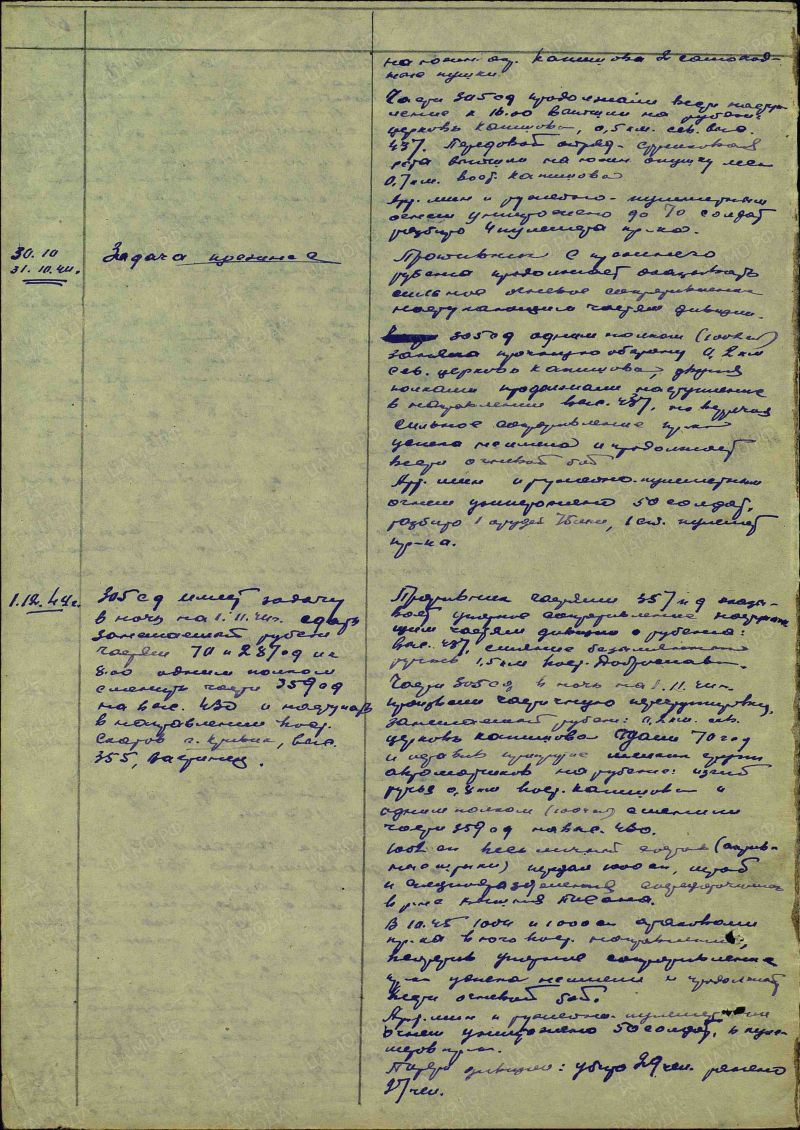 на южн. окр. Капишова 2 самоход-
ные пушки.
Части 305 сд продолжали вести наступ-
ление к 16.00 вышли на рубеж:
церковь Капишова, 0,5 км. сев. выс.
437. Передовой отряд - стрелковая
рота вышли на южн. опушку леса
0,7 км. вост. Капишова
Арт. мин и ружейно-пулеметным
огнем уничтожено до 70 солдат
разбито 4 пулемета пр-ка.
30.10
31.10.44г.
Задача прежнее
Противник с прежнего
рубежа продолжает оказывать
сильное огневое сопротивление
наступающим частям дивизии.
305 сд одним полком (1002 сп)
заняла прочную оборону 0,2 км
сев. церковь Капишова, двумя
полками продолжали наступление
в направлении выс. 437, но встречая
сильное сопротивление пр-ка
успеха не имела и продолжает
вести огневой бой
Арт. мин и ружейно-пулеметным
огнем уничтожено 50 солдат,
разбито 1 орудие 75 мм, 1 ст. пулемет
пр-ка.
1.12.44г.
305 сд имеет задачу
в ночь на 1.11.44г. сдать
занимаемый рубеж
частям 70 и 237 сд и к
8.00 одним полком
сменить части 359 сд
на выс. 430 и наступать
в направлении вост.
скатов г. Кривак, выс.
355,
Противник частями 357 пд оказы-
вает упорное сопротивление наступаю-
щим частям дивизии с рубежа:
выс. 437, слияние безымянного
ручья 1,5 км вост. Доброслава.
Части 305 сд в ночь на 1.11.44г.
произвели частичную перегруппировку,
занимаемый рубеж: 0,2 км. сев.
церковь Капишова сдали 70 гсд
и оставив мелкие группы
автоматчиков на рубеже: изгиб
ручья 0,4 км вост. Капишова и
одним полком (1004 сп) сменили
части 359 сд на выс. 430.
1002 сп весь личный состав (актив-
ные штыки) передал 1000 сп, штаб
и спецподразделения сосредоточились
в р-не Вышня Писана.
В 10.45 1004 и 1000 сп атаковали
пр-ка в юго вост. направлении,
встретив упорное сопротивление
пр-ка успеха не имели и продолжают
вести огневой бой.
Арт. мин и ружейно-пулеметным
огнем уничтожено 50 солдат, пуле-
метов пр-ка.
Потери дивизии: убито 29 чел. ранено
27 чел.